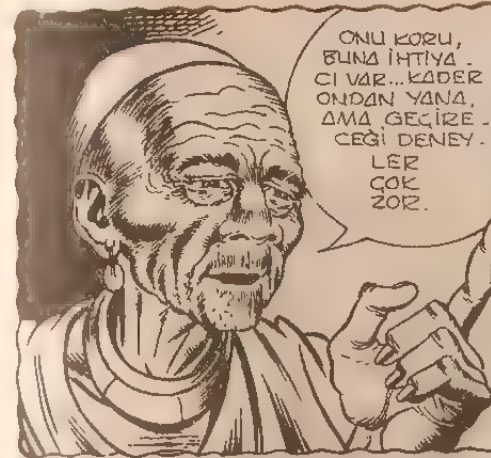 ONU KORU,
BUNA İHTİYA-
CI VAR...KADER
ONDAN YANA,
AMA GEÇİRE-
CEĞİ DENEY-
LER
ÇOK
ZOR.